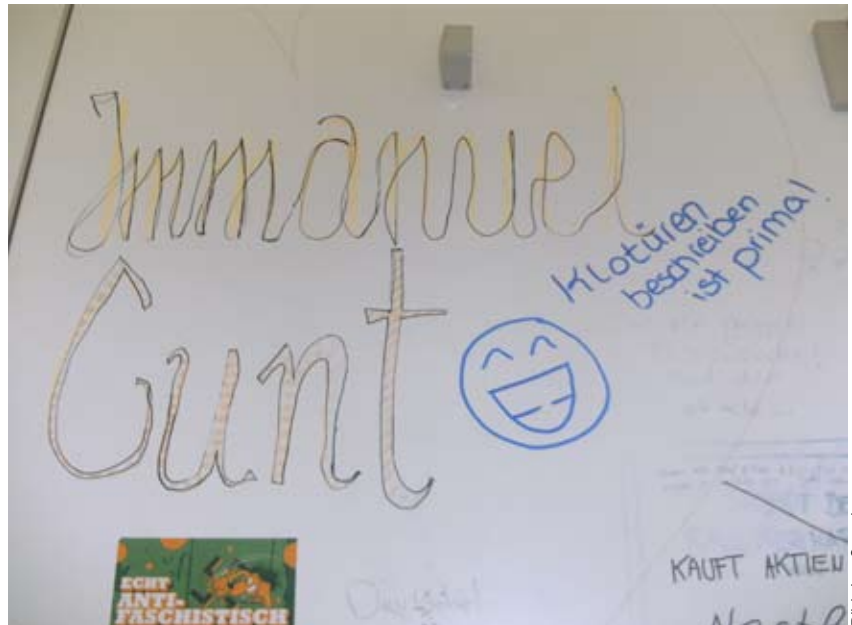 Immanuel
Cunt
Klotüren
beschreiben
ist prima!
ECHT
ANTI-
FASCHISTISCH
KAUFT AKTIEN